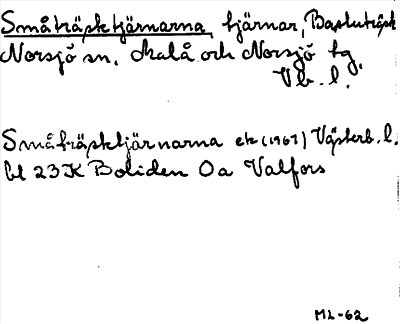 Småträsktjärnarna, tjärnar, Bastuträsk
Norsjö sn. Malå och Norsjö tg,
Vb. l.
Småträsktjärnarna ek (1967) Västerb. l.
bl 23K Boliden 0a Valfors
ML-62